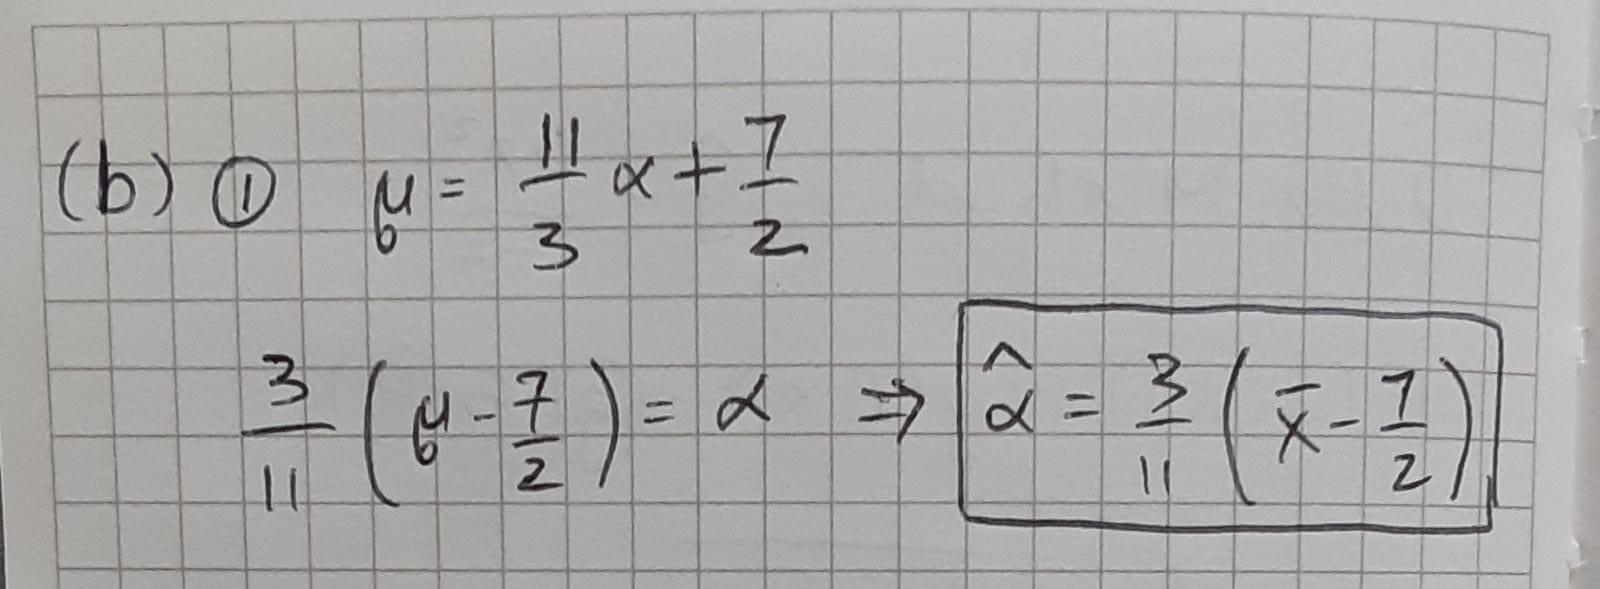 (b) ① μ = 11/3 α + 7/2
3/11 (μ - 7/2) = α ⇒ α̂ = 3/11 (x̄ - 7/2)